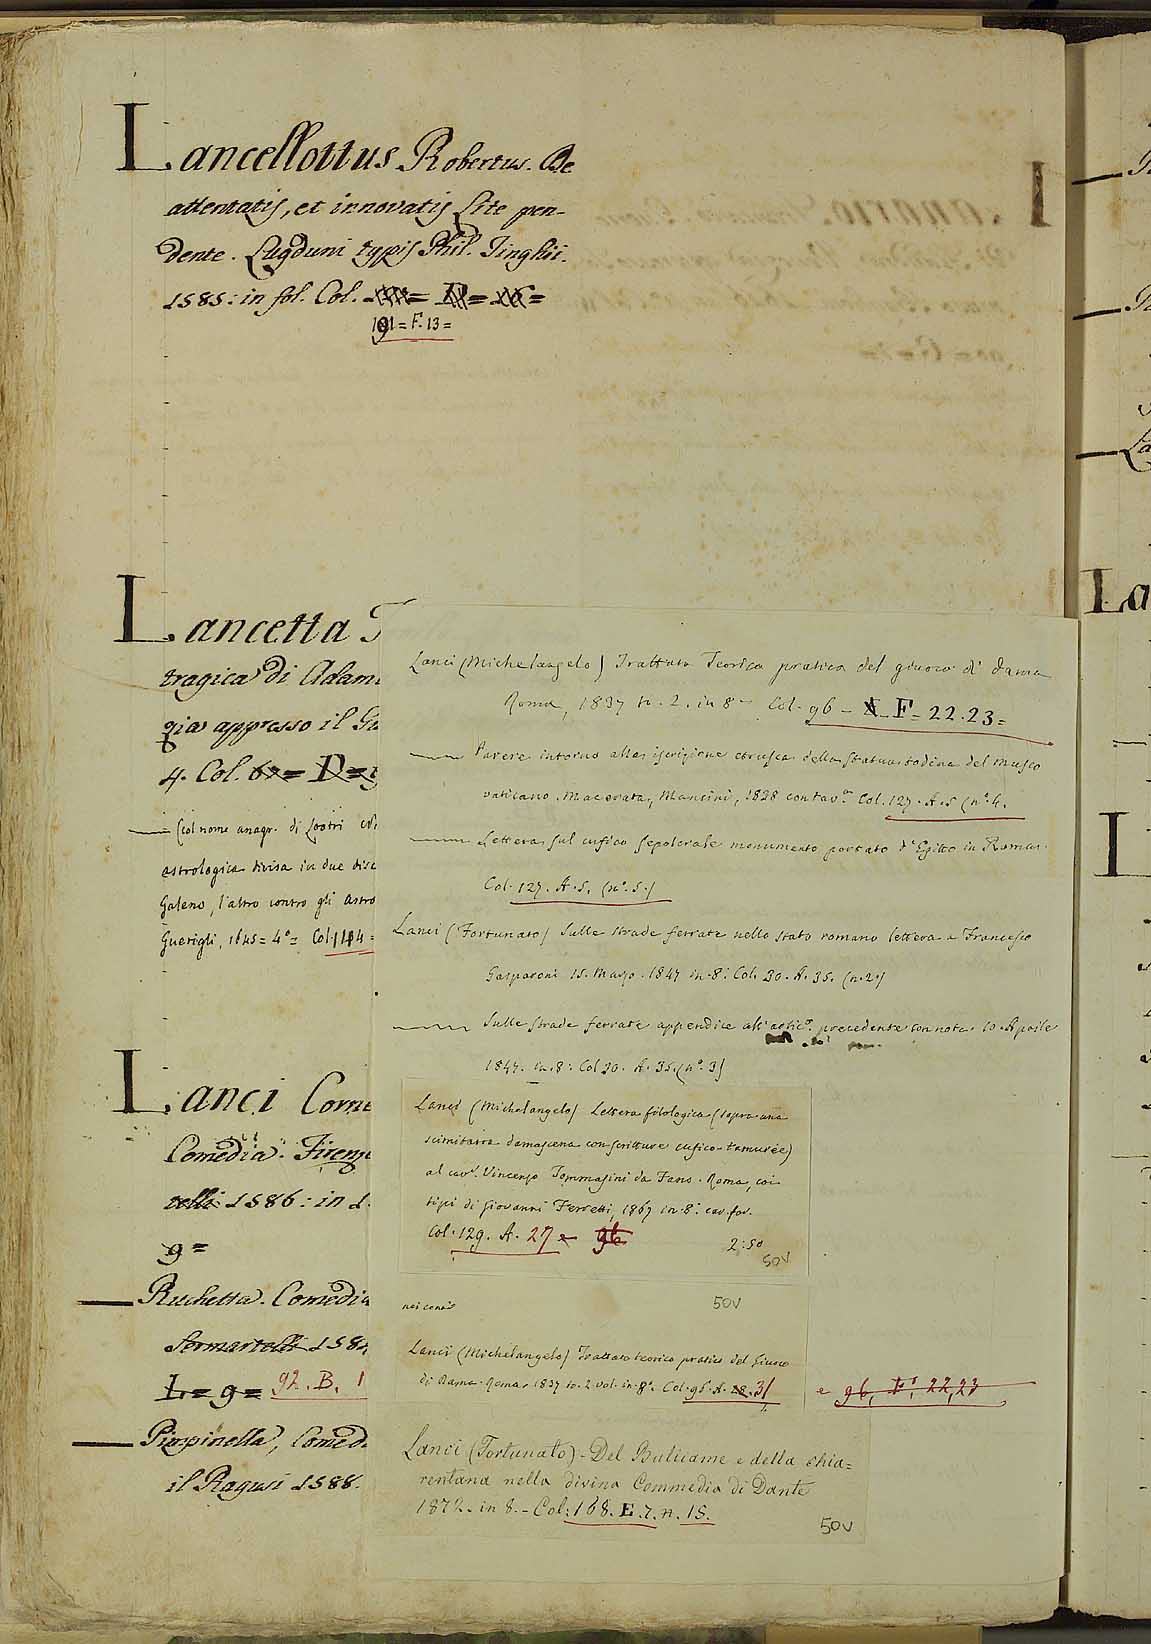 Lancellottus Robertus. De
attentatis, et innovatis Lite pen-
dente. Lugduni typis Phil. Tinghii.
1585: in fol. Col.
101 = F. 13 =
Lancetta T
tragica di Adam
gia appresso il Gu
4. Col. 62 = D =
(col nome anagr. di
astrologica divisa in due disc
Galeno, l'altro contro gli Astro
Guerigli, 1645 = 4° = Col. 114 =
Lanci Corne
Comedia. Firenze
telli 1586: in 1
9 =
Ruchetta. Comedia
Sermartelli 158
L = 9 = 92. B. 1
Pimpinella, Comed
il Ragusi 1588.
Lanci (Michelangelo) Trattato Teorico pratico del giuoco di dama
Roma, 1837 to. 2. in 8° Col. 96 - A F = 22.23 =
Parere intorno alla iscrizione etrusca della statua todina del museo
vaticano. Macerata, Mancini, 1828 con tav. Col. 127. A. 5 (n° 4.
Lettera sul cufico sepolcrale monumento portato d'Egitto in Roma.
Col. 127. A. 5. (n°. 5.)
Lanci (Fortunato) Sulle strade ferrate nello stato romano lettera a Francesco
Gasparoni 15. Marzo. 1847 in 8: Col. 30. A. 35. (n. 2.)
Sulle strade ferrate appendice all' artic°. precedente con note. 10. Aprile
1847. in 8: Col 30. A. 35. (n°. 3)
Lanci (Michelangelo) Lettera filologica (sopra una
scimitarra damascena con scritture cufico-tamurèe)
al cav. Vincenzo Tommasini da Fano. Roma, coi
tipi di Giovanni Ferretti, 1867 in 8:
Col. 129. A. 27 e 96
2:50
50V
50V
Lanci (Michelangelo) Trattato teorico pratico del Giuoco
di Dama. Roma. 1837 to. 2 vol. in 8°. Col. 96. A. 28. 31 e 96, F. 22,23
Lanci (Fortunato) - Del Bulicame e della chia=
rentana nella divina Commedia di Dante
1872. in 8. - Col: 168. E. 7. n. 15.
50V
La
L
La